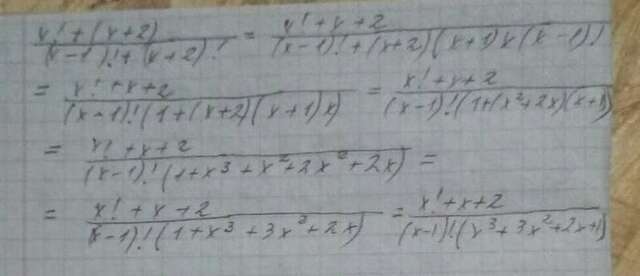 x! + (x+2) / (x-1)! + (x+2)! = x! + x + 2 / (x-1)! + (x+2)(x+1)x(x-1)!
= x! + x + 2 / (x-1)!(1+(x+2)(x+1)x) = x! + x + 2 / (x-1)!(1+(x²+2x)(x+1))
= x! + x + 2 / (x-1)!(1+x³+x²+2x²+2x) =
= x! + x + 2 / (x-1)!(1+x³+3x²+2x) = x! + x + 2 / (x-1)!(x³+3x²+2x+1)